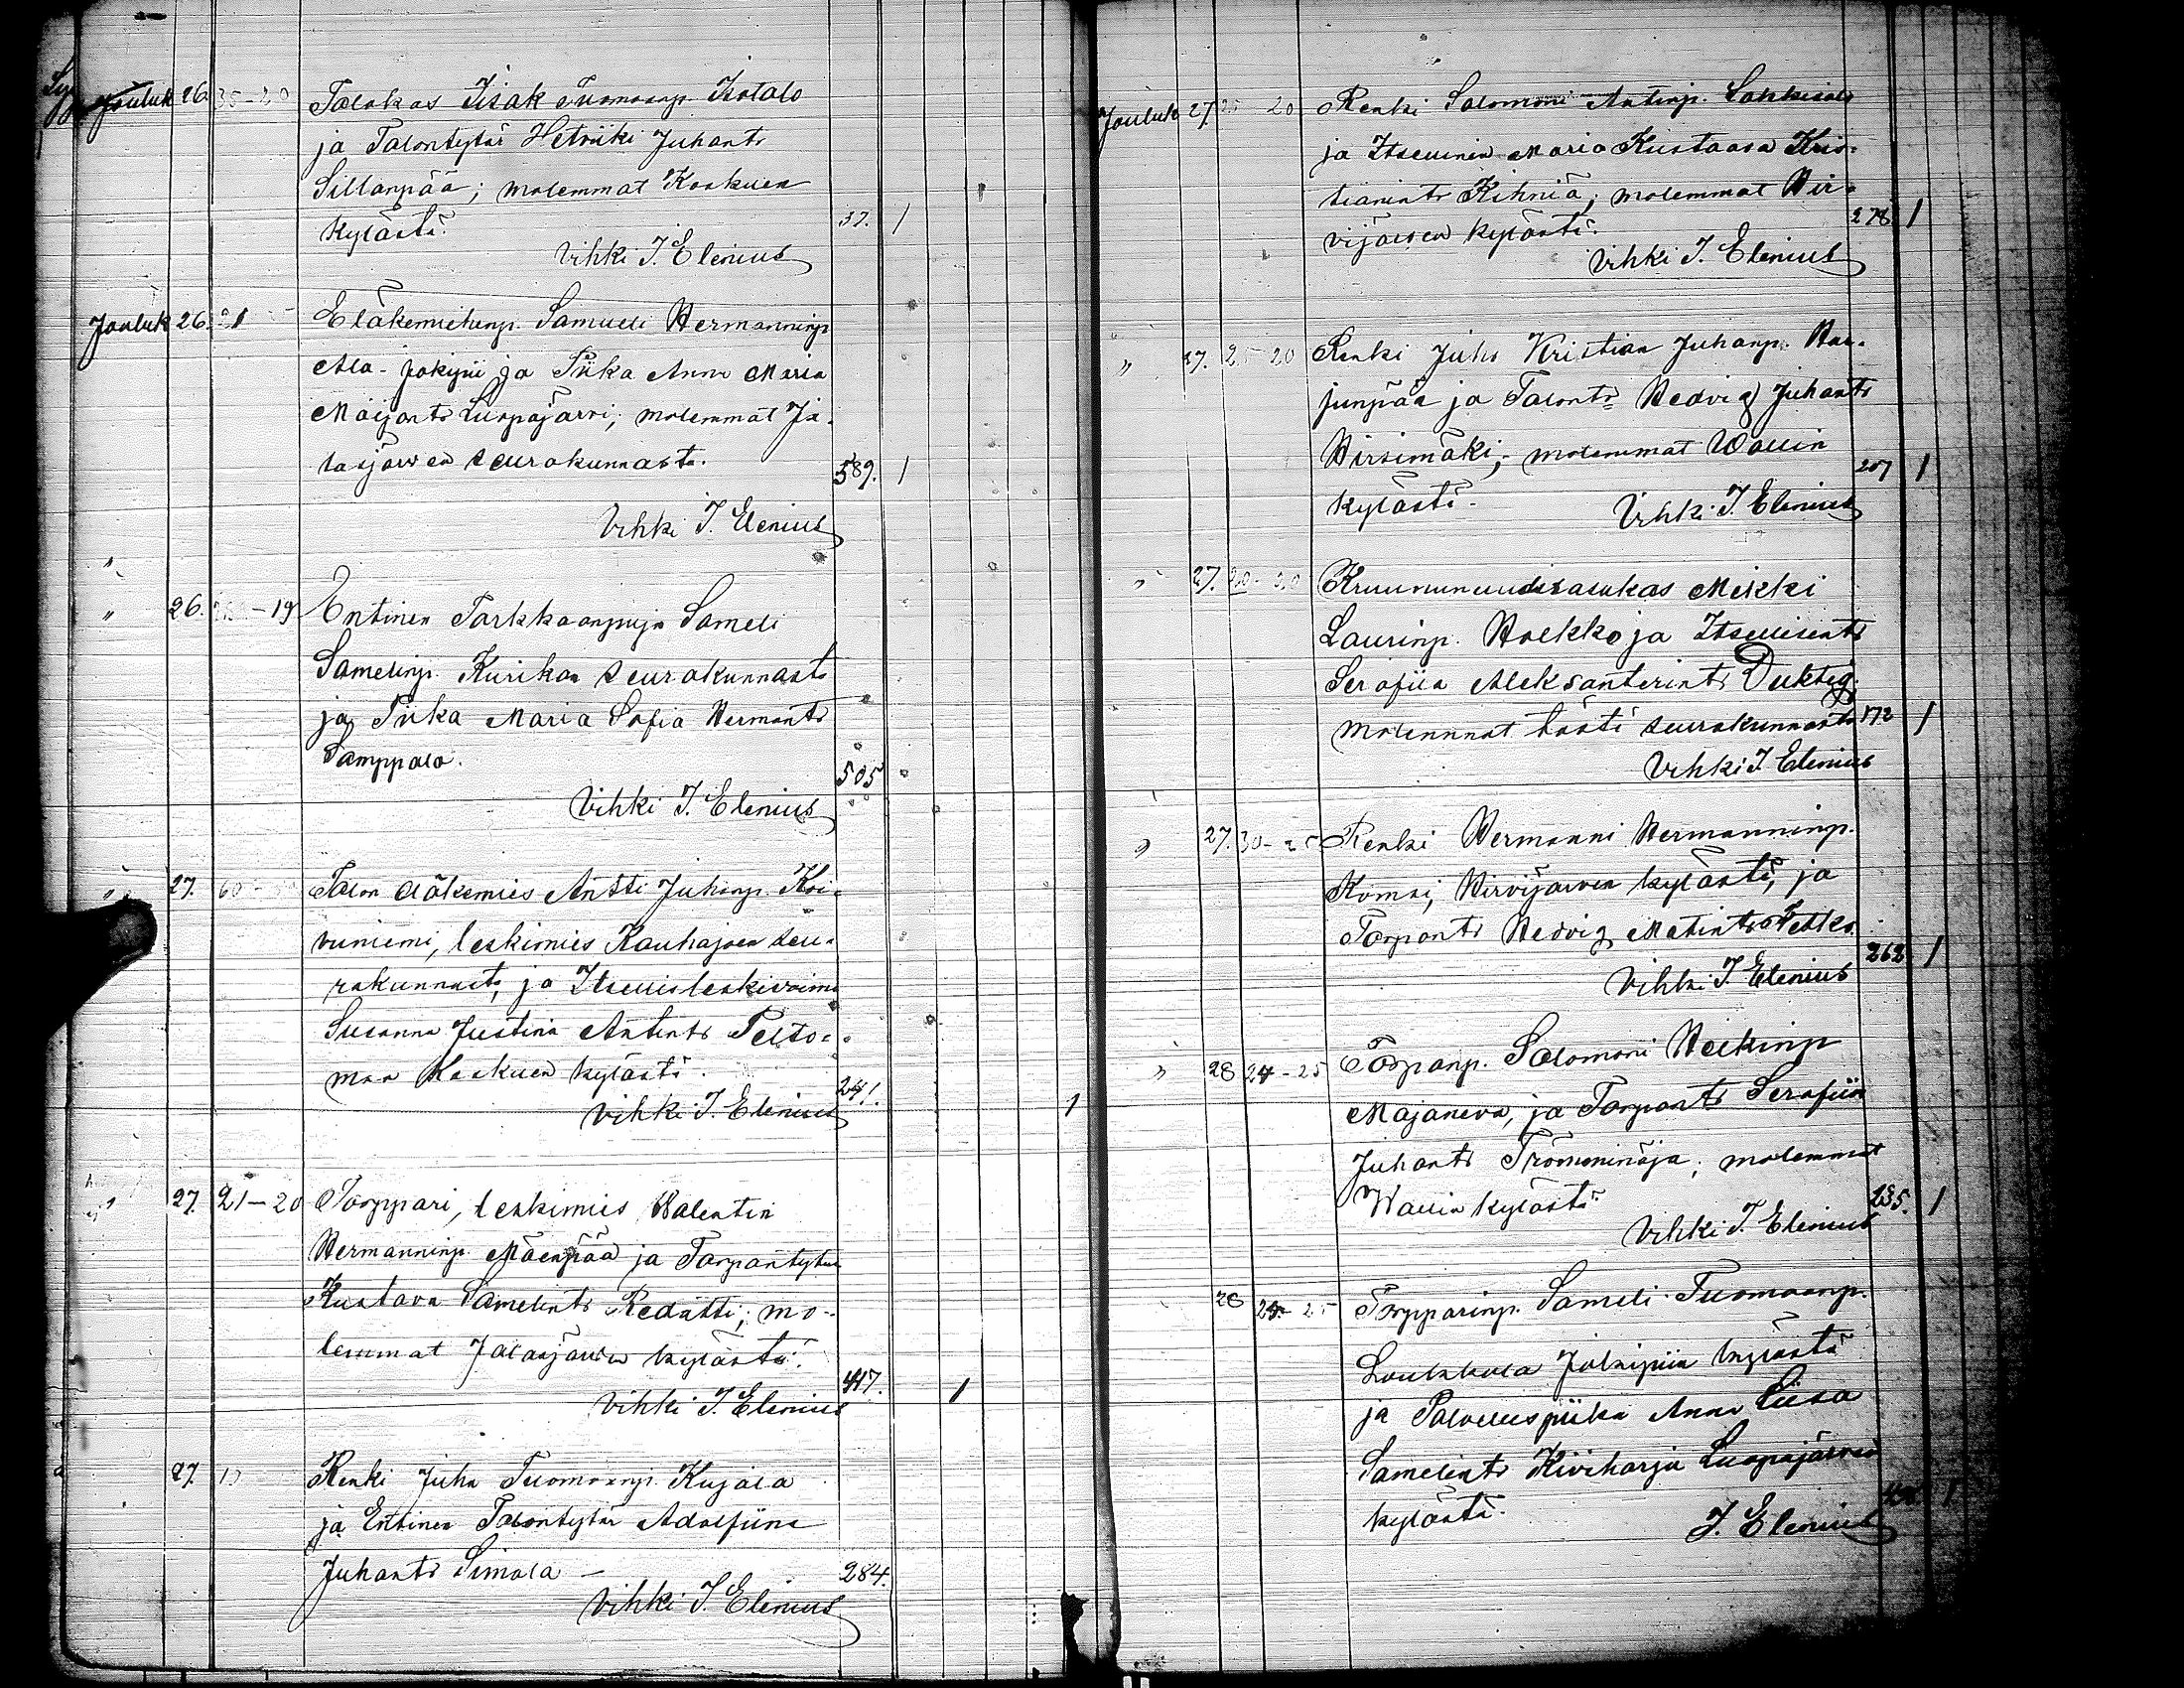 Jouluk 26. 35-20 Talokas Iisak Tuomaanp. Isotalo
ja Talontytär Hetriiki Juhant
Sillanpää; molemmat Koskuen
kylästä. 37. 1
Vihki J. Elenius
Jouluk 26. 21 Eläkemiehenp. Samueli Hermanninp
Ala-Jokipii ja Piika Anna Maria
Maijant Luopajärvi; molemmat Ja-
lasjärwen seurakunnasta. 589. 1
Vihki J. Elenius
"
" 26. -19 Entinen Tarkkaampuja Sameli
Samelinp. Kurikan seurakunnasta
ja Piika Maria Sofia Hermants
Samppala. 505
Vihki J. Elenius
" 27. 60 Talon eläkemies Antti Juhanp. Koi-
vuniemi, leskimies Kauhajoen seu-
rakunnasta, ja Itsellisleskivaimo
Susanna Justina Antints Pelto-
maa Koskuen kylästä. 241.
Vihki J. Elenius 1
" 27. 21-20 Torppari, leskimies Walentin
Hermanninp. Mäenpää ja Torpantytär
Kustava Samelints Redätti; mo-
lemmat Jalasjärwen kylästä. 417. 1
Vihki J. Elenius
27. Renki Juha Tuomaanp. Kujala
ja Entinen Talontytär Adolfiina
Juhants Simola - 284.
Vihki J. Elenius
Jouluk 27. 25 20 Renki Salomoni Antinp. Lakkisalo
ja Itsellinen Maria Kustaava Kris-
tianints Kihniä; molemmat Hir-
vijärven kylästä. 278 1
Vihki J. Elenius
" 27. 25-20 Renki Juho Kristian Juhanp. Har-
junpää ja Talonts Hedvig Juhants
Hirsimäki; molemmat Wallin
kylästä. 207 1
Vihki J. Elenius
" 27. 20-20 Kruununuudisasukas Mikki
Laurinp. Holkko ja Itsellisents
Serafiia Aleksanterints Duktig.
molemmat tästä seurakunnasta 172 1
Vihki J. Elenius
" 27. 30-25 Renki Hermanni Hermanninp.
Komsi, Hirvijärven kylästä, ja
Torpants Hedvig Matints 262 1
Vihki J. Elenius
" 28 24-25 Torpanp. Salomoni Heikinp
Majaneva, ja Torpants Serafiia
Juhants molemmat
Wallin kylästä 235. 1
Vihki J. Elenius
28 24-25 Torpparinp. Sameli Tuomaanp.
Loukkola Jokipiin kylästä
ja Palveluspiika Anna Liisa
Samelints Kiviharju Luopajärven
kylästä. 1
J. Elenius